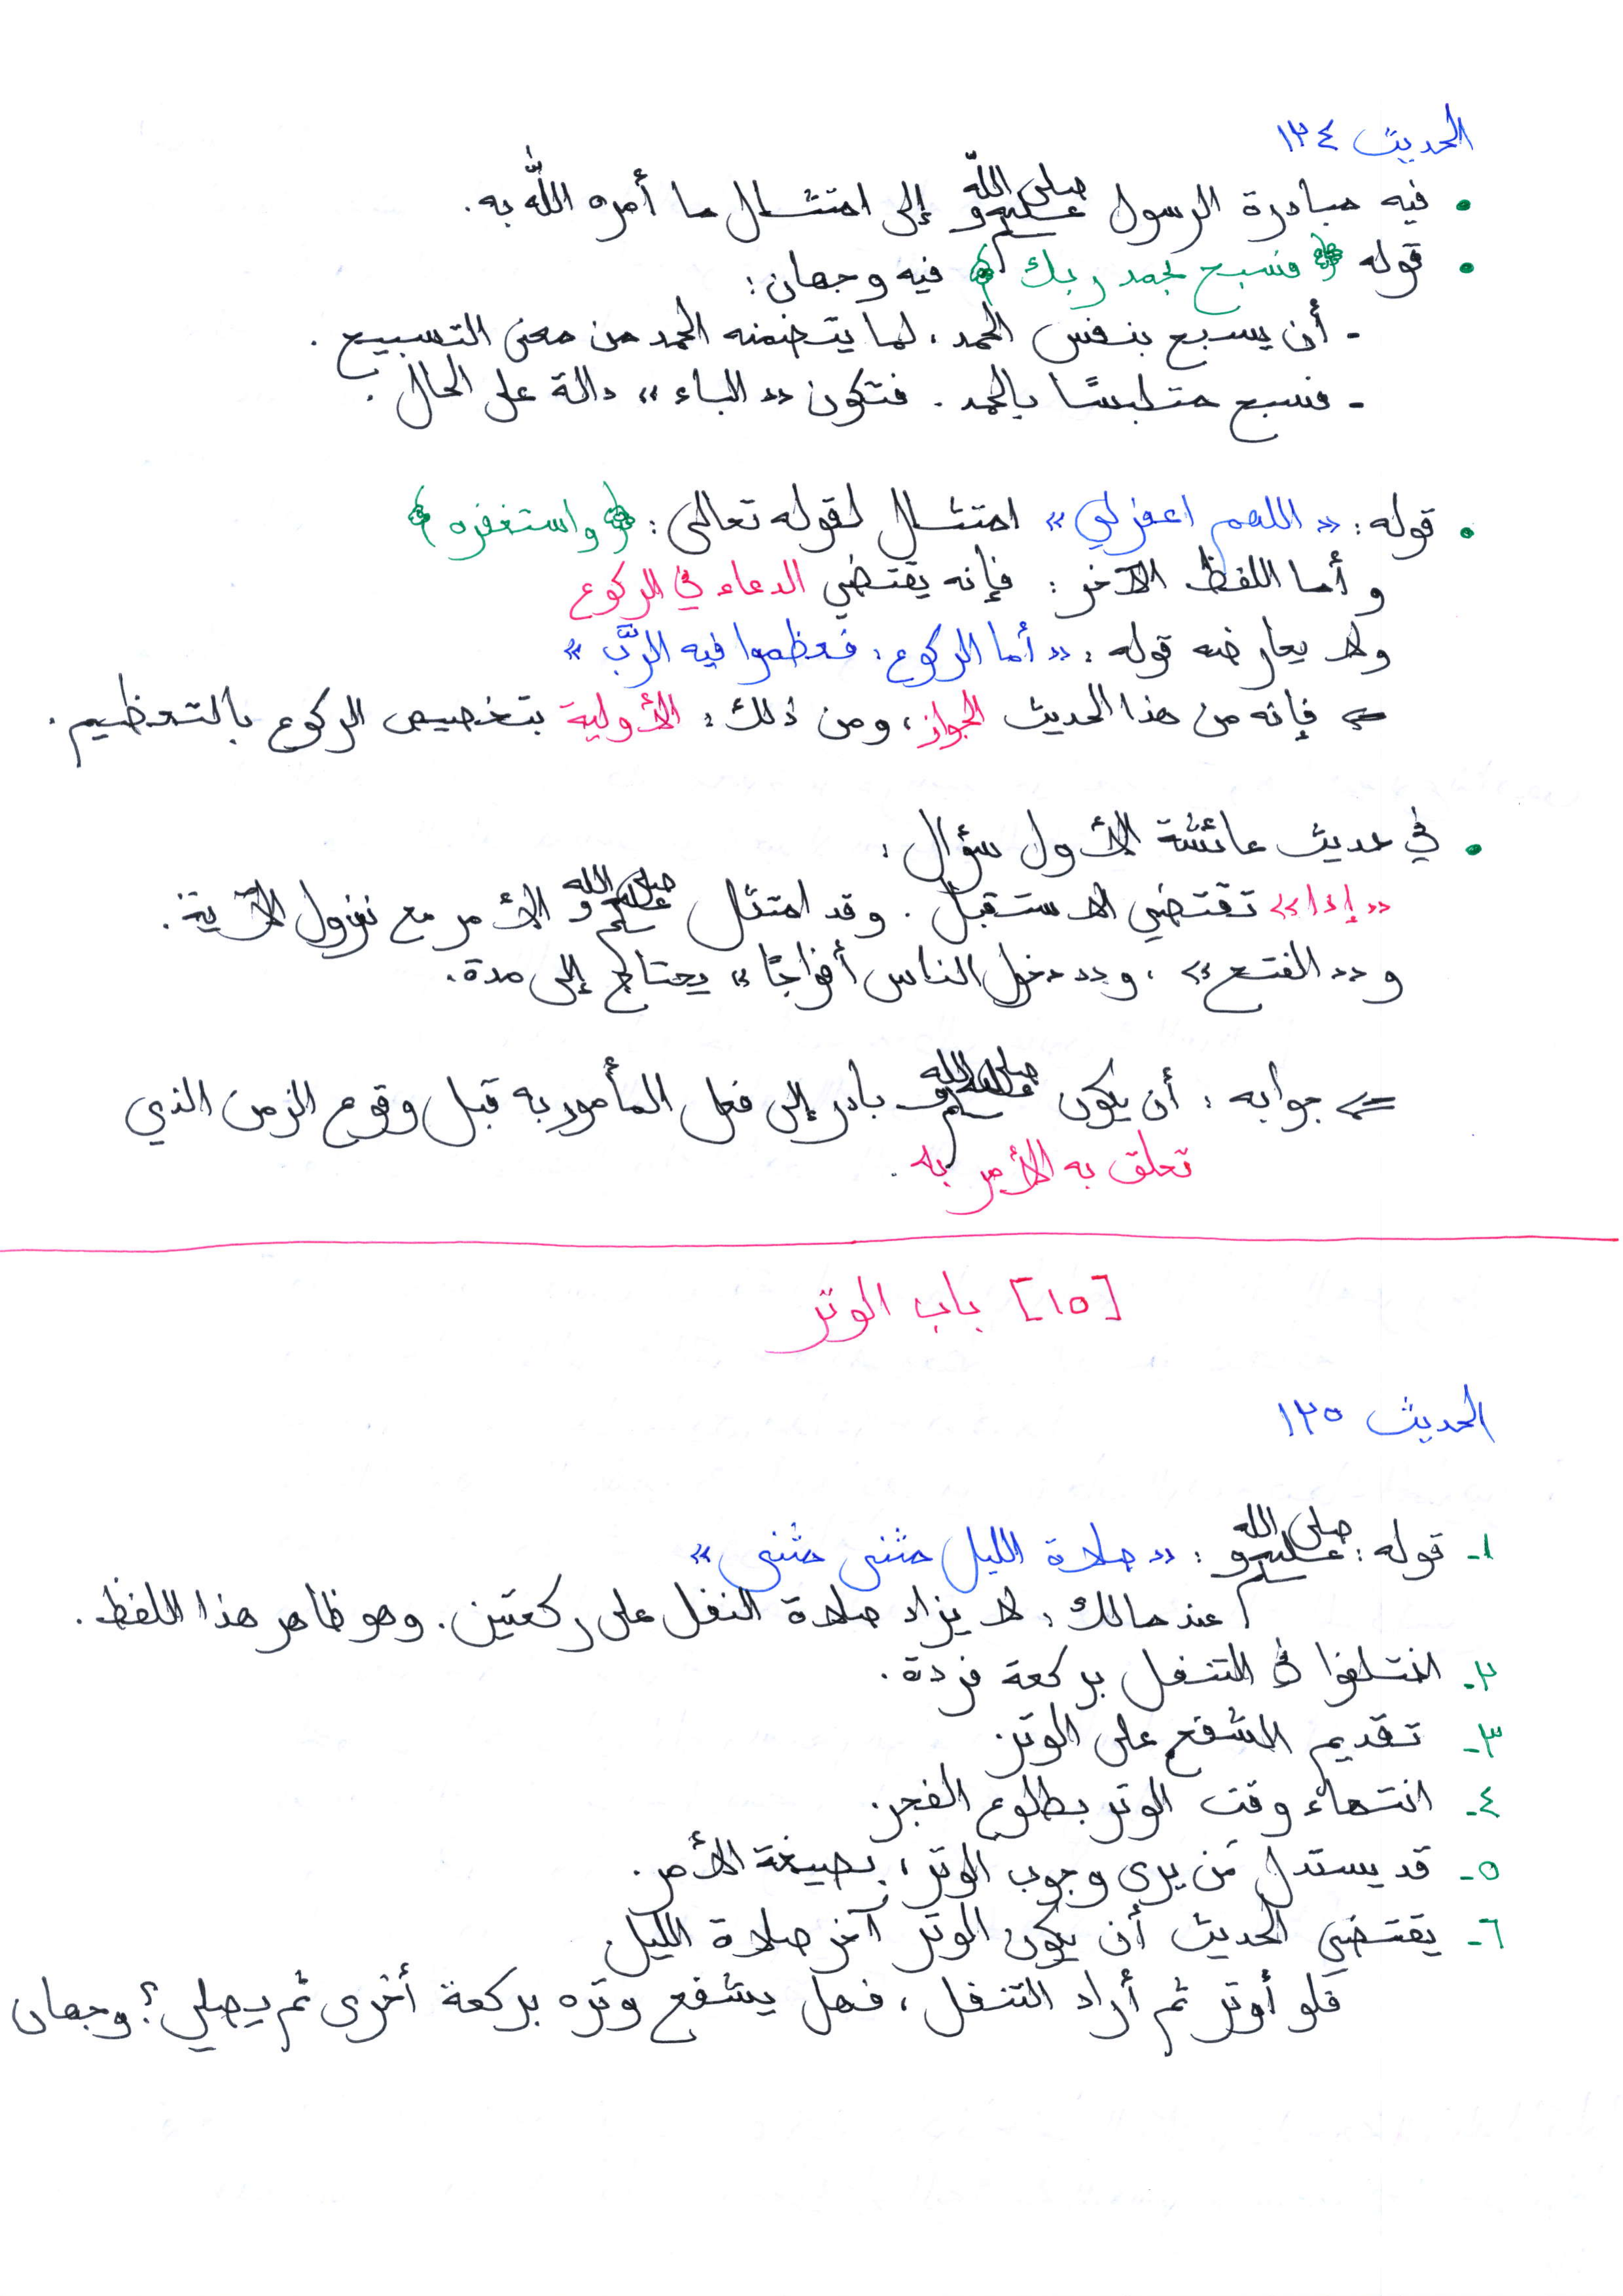 الحديث ١٣٤
• فيه مبادرة الرسول صلى الله عليه وسلم إلى امتثال ما أمره الله به.
• قوله ﴿فسبح بحمد ربك﴾ فيه وجهان:
- أن يسبح بنفس الحمد، لما يتضمنه الحمد من معنى التسبيح.
- فسبح متلبسًا بالحمد. فتكون «الباء» دالة على الحال.
• قوله: «اللهم اغفر لي» امتثال لقوله تعالى: ﴿واستغفره﴾
وأما اللفظ الآخر: فإنه يقتضي الدعاء في الركوع
ولا يعارضه قوله: «أما الركوع: فعظموا فيه الرَّبَّ»
⇐ فإنه من هذا الحديث الجواز، ومن ذلك: الأولية بتخصيص الركوع بالتعظيم.
• في حديث عائشة الأول سؤال:
«إذا» تقتضي الاستقبال. وقد امتثل صلى الله عليه وسلم الأمر مع نزول الآية.
و«الفتح»، و«دخول الناس أفواجًا» يحتاج إلى مدة.
⇐ جوابه: أن يكون صلى الله عليه وسلم بادر إلى فعل المأمور به قبل وقوع الزمن الذي
تعلق به الأمر به.
[١٥] باب الوتر
الحديث ١٣٥
١- قوله: صلى الله عليه وسلم: «صلاة الليل مثنى مثنى»
عند مالك: لا يزاد صلاة النفل على ركعتين. وهو ظاهر هذا اللفظ.
٢- اختلفوا في التنفل بركعة فردة.
٣- تقديم الشفع على الوتر.
٤- انتهاء وقت الوتر بطلوع الفجر.
٥- قد يستدل مَن يرى وجوب الوتر، بصيغة الأمر.
٦- يقتضي الحديث أن يكون الوتر آخر صلاة الليل.
فلو أوتر ثم أراد التنفل، فهل يشفع وتره بركعة أخرى ثم يصلي؟ وجهان